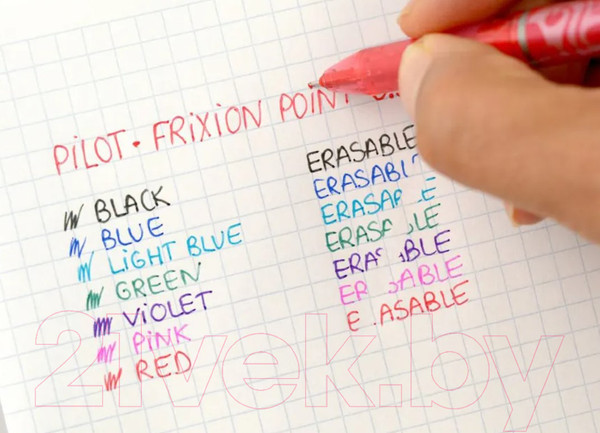 PILOT • FRiXiON POiNT
BLACK
BLUE
LiGHT BLUE
GREEN
ViOLET
PiNK
RED
ERASABLE
ERASABL
ERASAB E
ERASA LE
ERA ABLE
ER ABLE
E ASABLE
21vek.by